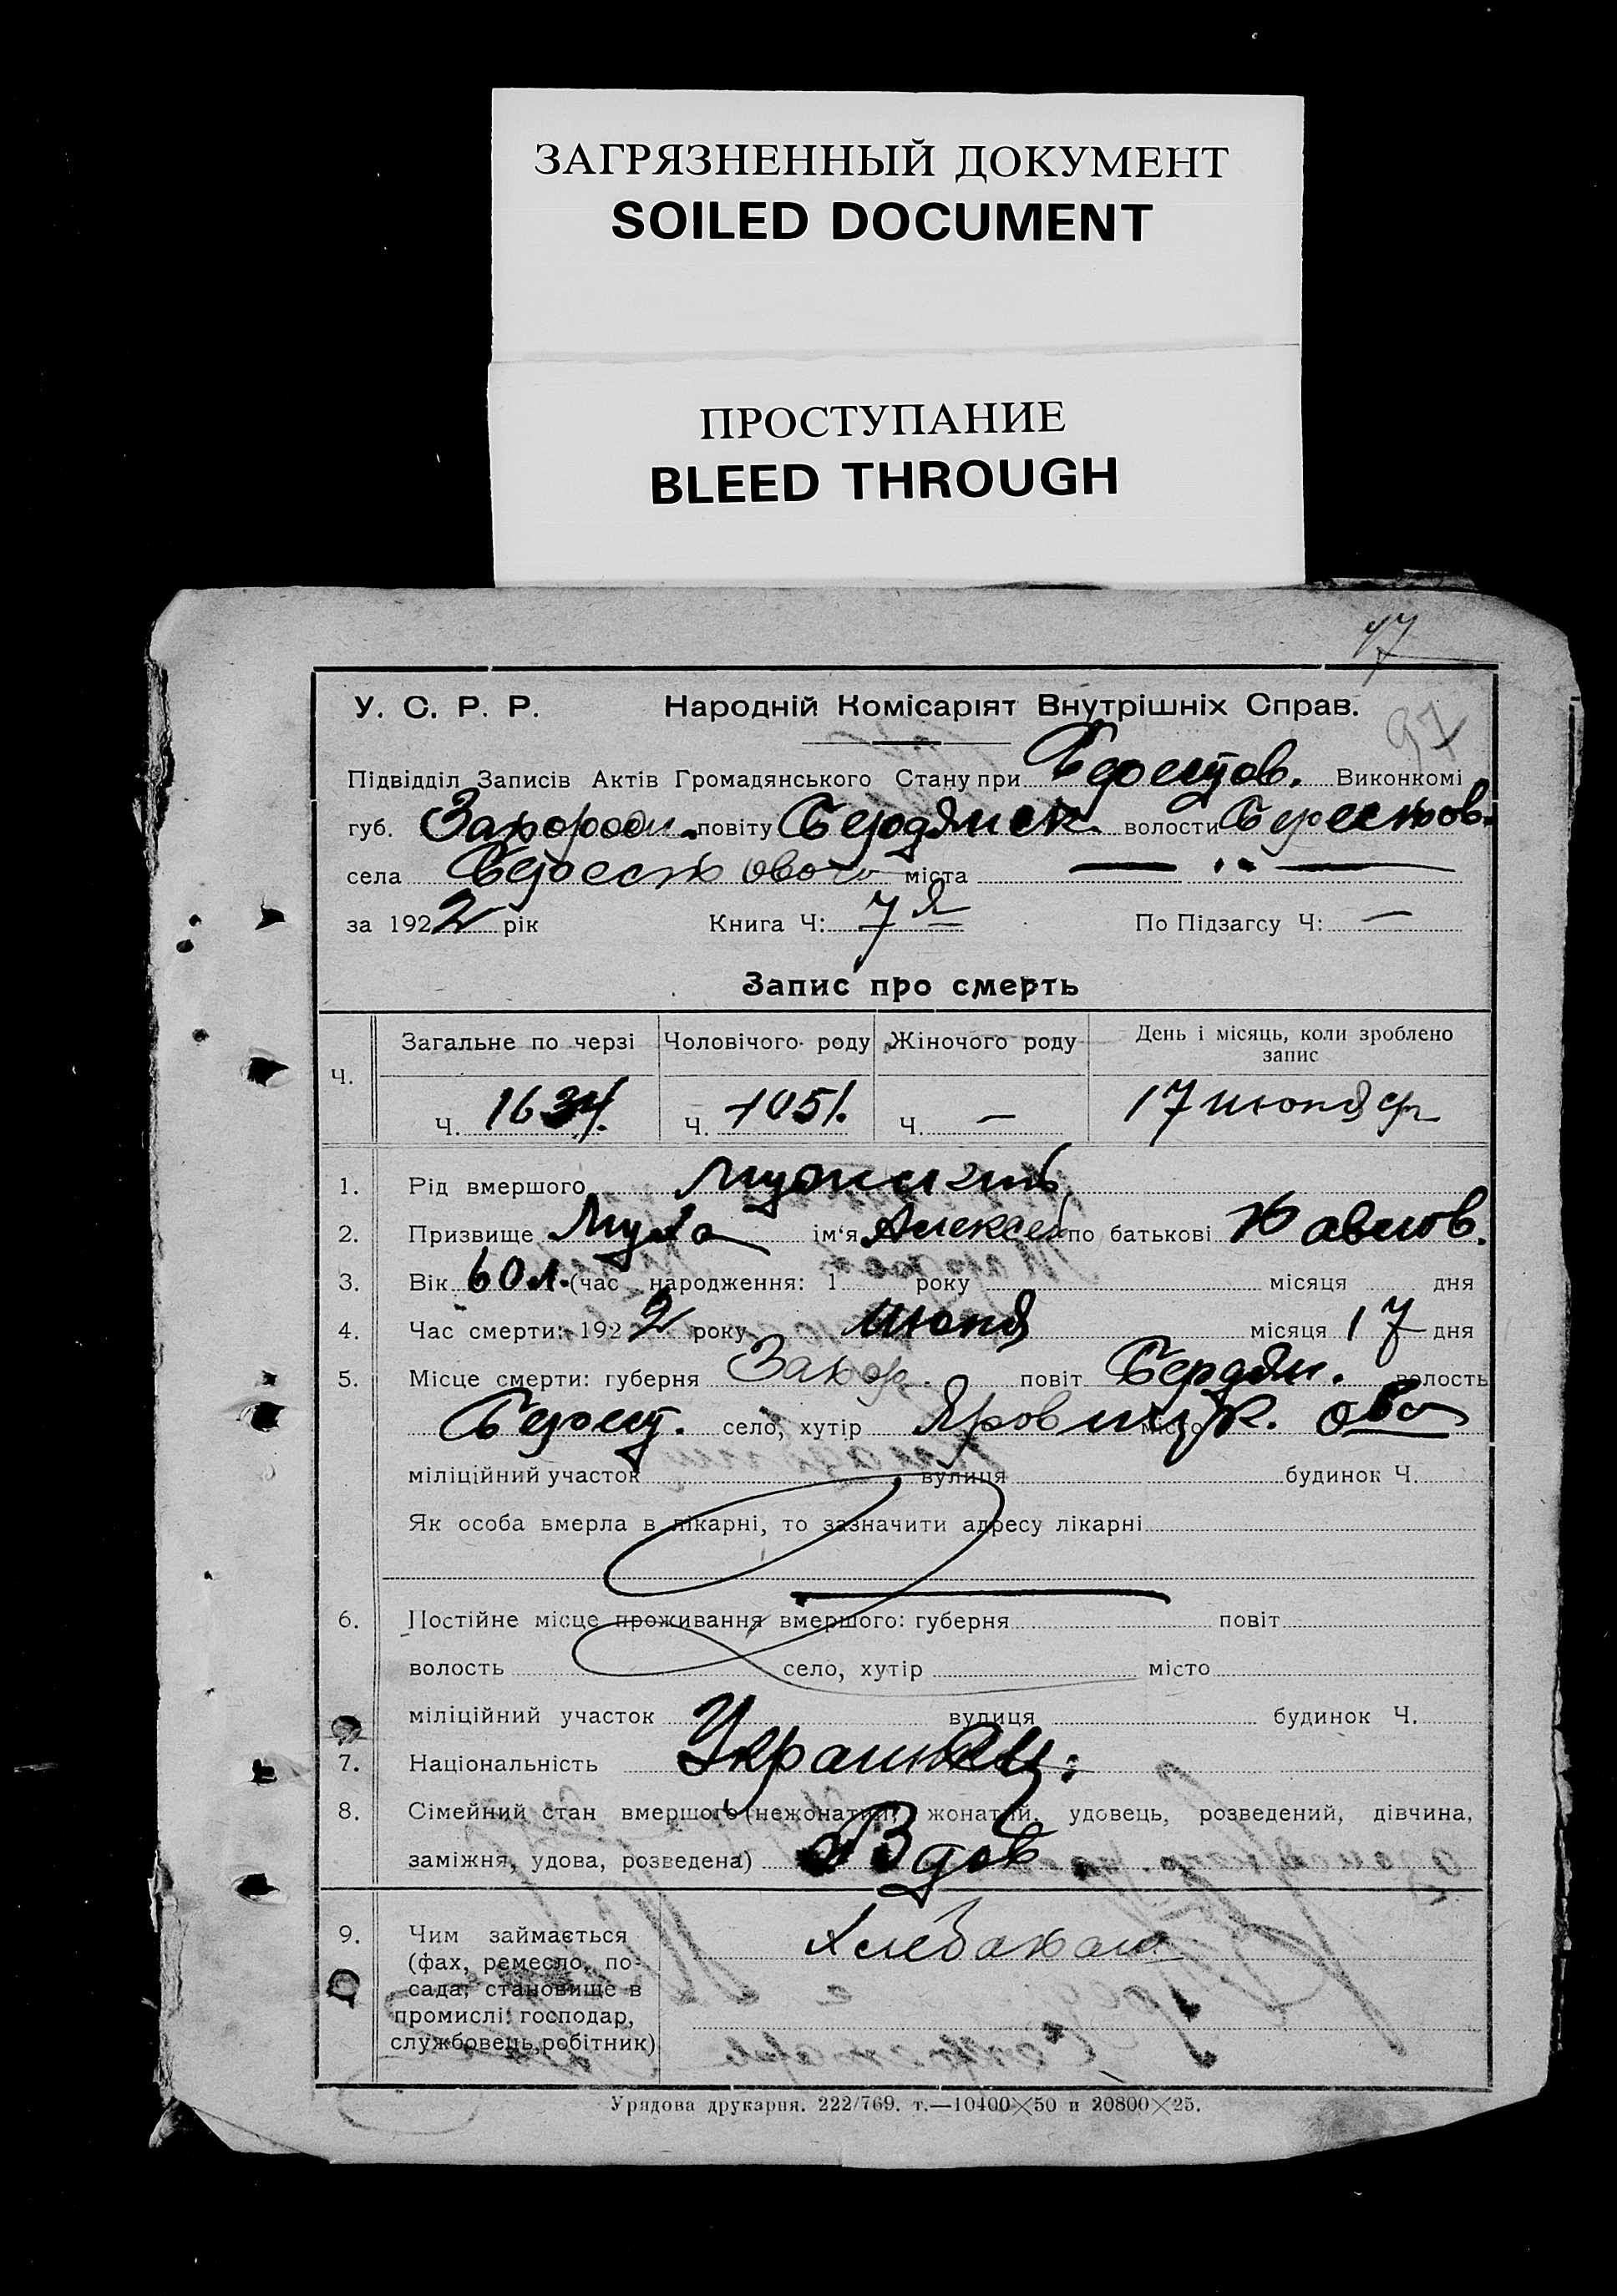 ЗАГРЯЗНЕННЫЙ ДОКУМЕНТ
SOILED DOCUMENT
ПРОСТУПАНИЕ
BLEED THROUGH
97
У. С. Р. Р. Народній Комісаріят Внутрішніх Справ.
Підвідділ Записів Актів Громадянського Стану при Берестов. Виконкомі
губ. повіту Бердянск. волости Берестов.
села Берестового міста —
за 1922 рік Книга Ч: 7я По Підзагсу Ч: —
Запис про смерть
Ч. Загальне по черзі Чоловічого роду Жіночого роду День і місяць, коли зроблено запис
Ч. 1634. Ч. 1051. Ч. — 17 июня
1. Рід вмершого мужчина
2. Призвище Муха ім'я Алексей по батькові Павлов.
3. Вік 60 л. (час народження: 1 року місяця дня
4. Час смерти: 1922 року июня місяця 17 дня
5. Місце смерти: губерня Запор. повіт Бердян. волость
Берест. село, хутір місто
міліційний участок вулиця будинок Ч.
Як особа вмерла в лікарні, то зазначити адресу лікарні
6. Постійне місце проживання вмершого: губерня повіт
волость село, хутір місто
міліційний участок вулиця будинок Ч.
7. Національність Украинец.
8. Сімейний стан вмершого (нежонатий, жонатий, удовець, розведений, дівчина,
заміжня, удова, розведена) Вдов
9. Чим займається Хлебопаш
(фах, ремесло, по-
сада, становище в
промислі: господар,
службовець, робітник)
Урядова друкарня. 222/769. т.—10400×50 и 20800×25.